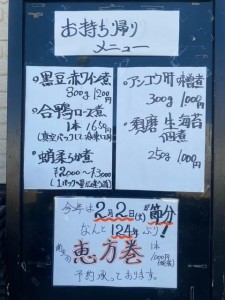 お持ち帰り
メニュー
○黒豆赤ワイン煮
300g 1200円
○合鴨ロース煮
1本 1650円
○蛸柔らか煮
¥2000～¥3000
○アンコウ肝味噌煮
300g 1000円
○剰磨 生海苔
佃煮
250g 1000円
今年は2月2日(火)が節分
なんと124年ぶり!
恵方巻
1本
1000円
予約承っております。